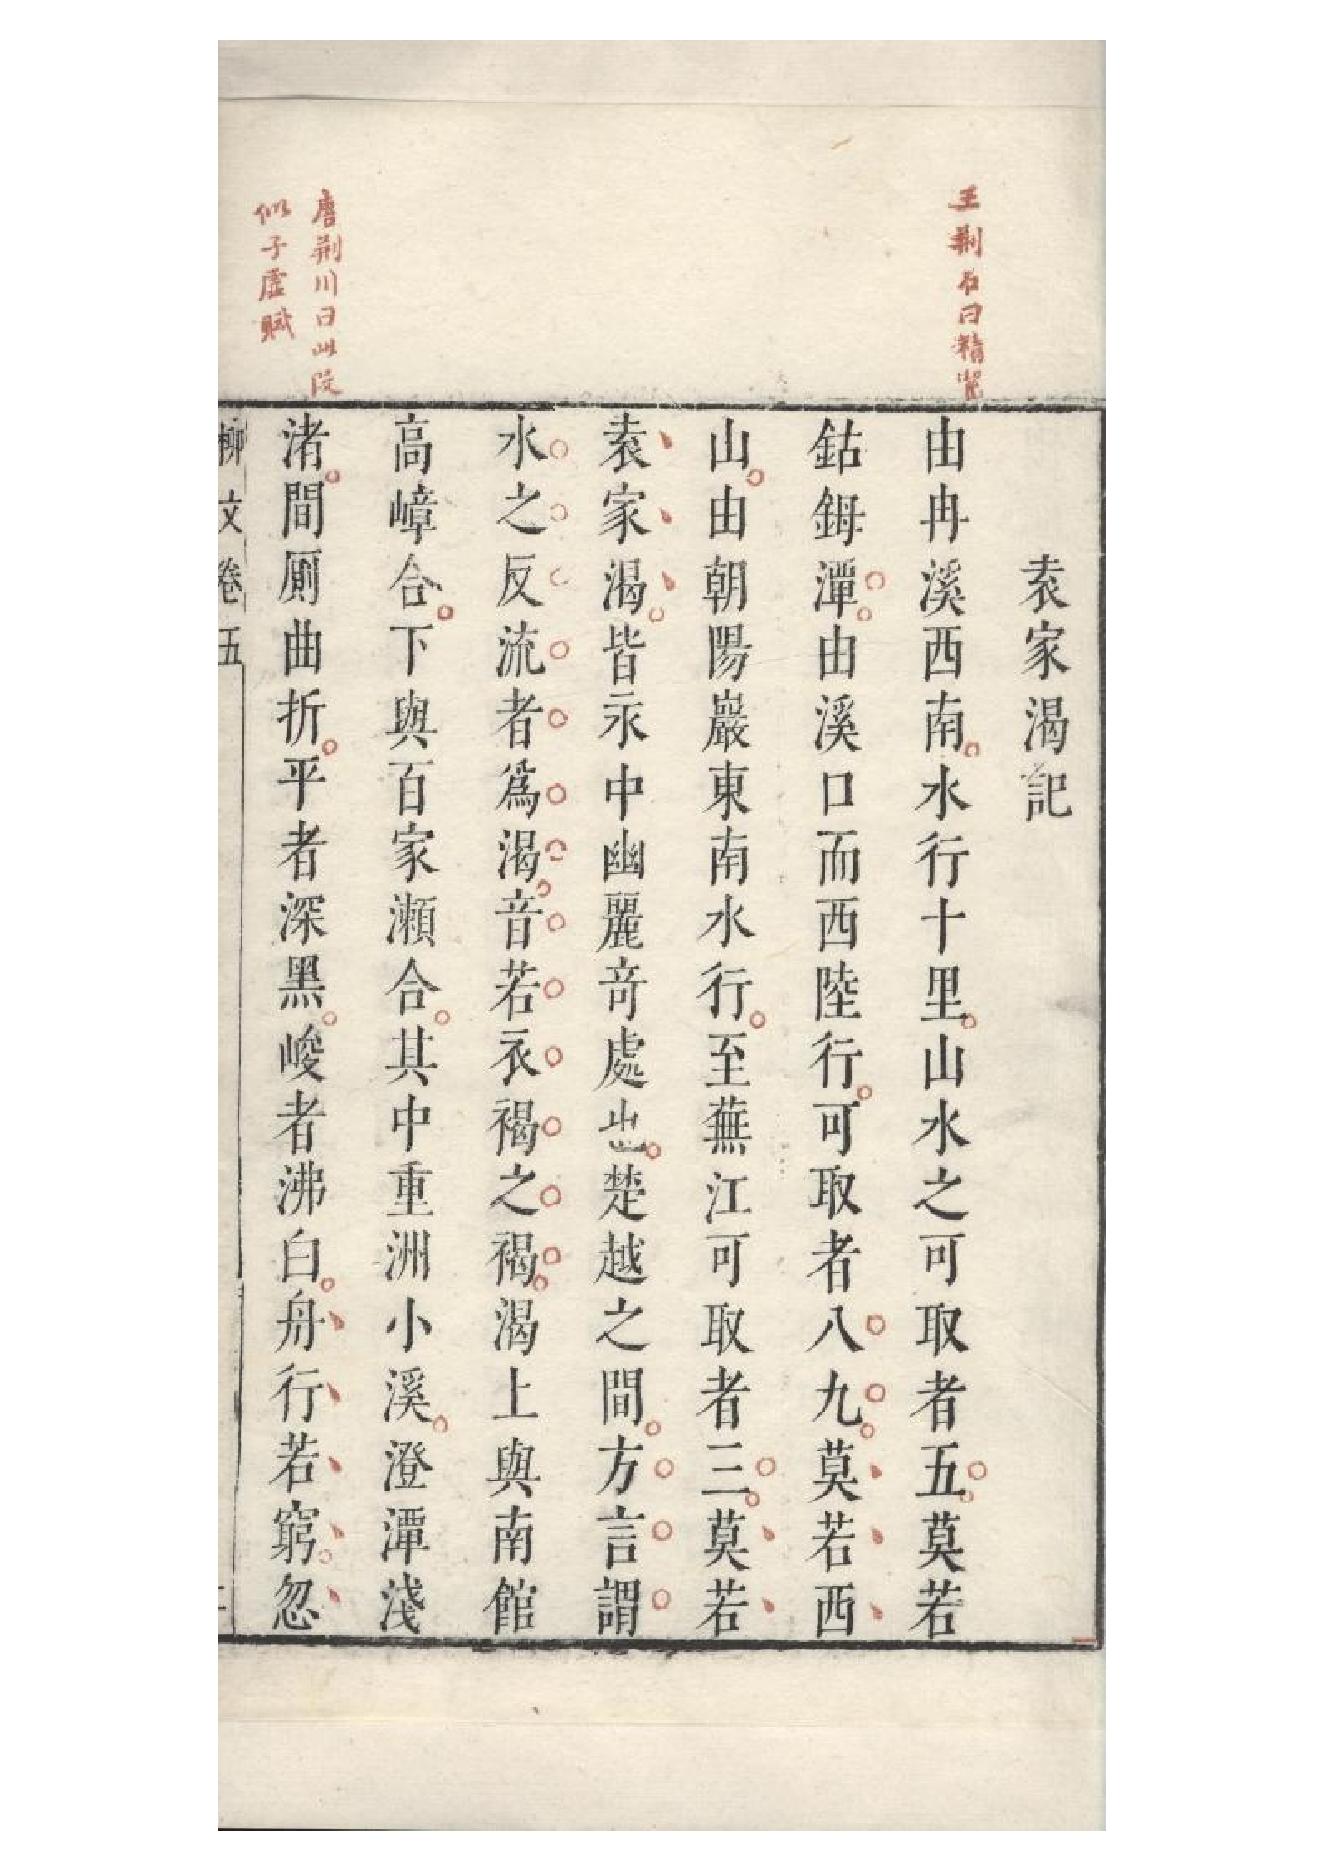 王荆石曰精麗
袁家渴記
由冉溪西南水行十里山水之可取者五莫若
鈷鉧潭由溪口而西陸行可取者八九莫若西
山由朝陽巖東南水行至蕪江可取者三莫若
袁家渴皆永中幽麗奇處也楚越之間方言謂
水之反流者爲渴音若衣褐之褐渴上與南館
高嶂合下與百家瀨合其中重洲小溪澄潭淺
唐荆川曰此段
似子虛賦
渚間厠曲折平者深黑峻者沸白舟行若窮忽
柳文卷五